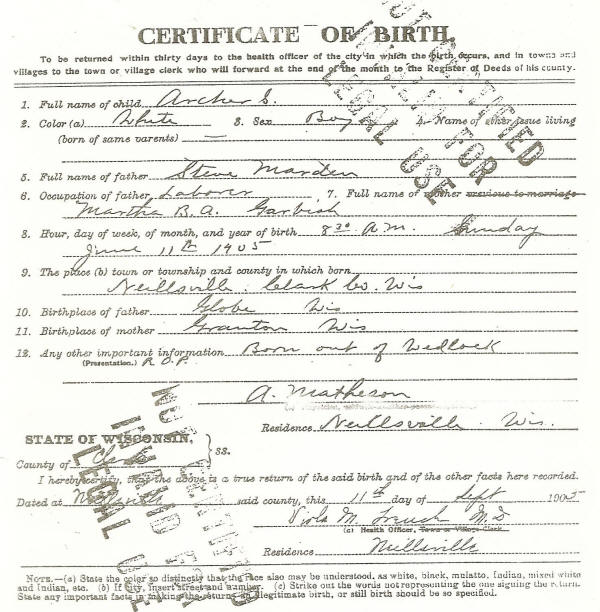 CERTIFICATE OF BIRTH.
To be returned within thirty days to the health officer of the city in which the birth occurs, and in towns and
villages to the town or village clerk who will forward at the end of the month to the Register of Deeds of his county.
1. Full name of child Archer S.
2. Color (a) White 3. Sex Boy 4. Name of other issue living
(born of same parents) —
5. Full name of father Steve Marden
6. Occupation of father Laborer 7. Full name of mother previous to marriage
Martha B. A. Garbish
8. Hour, day of week, of month, and year of birth 8 30 A.M. Sunday
June 11th 1905
9. The place (b) town or township and county in which born
Neillsville Clark Co. Wis
10. Birthplace of father Globe Wis
11. Birthplace of mother Granton Wis
12. Any other important information Born out of Wedlock
(Presentation.) R.O.P.
A. Matheson
Residence Neillsville Wis.
STATE OF WISCONSIN,
County of Clark } SS.
I hereby certify, that the above is a true return of the said birth and of the other facts here recorded.
Dated at Neillsville said county, this 11th day of Sept 1905
Viola M. M.D.
(c) Health Officer, Town or Village Clerk
Residence Neillsville
NOTE.—(a) State the color so distinctly that the race also may be understood, as white, black, mulatto, Indian, mixed white
and Indian, etc. (b) If city, insert street and number. (c) Strike out the words not representing the one signing the return.
State any important facts in making the return, an illegitimate birth, or still birth should be so specified.
NOT CERTIFIED
INVALID FOR
LEGAL USE
NOT CERTIFIED
INVALID FOR
LEGAL USE